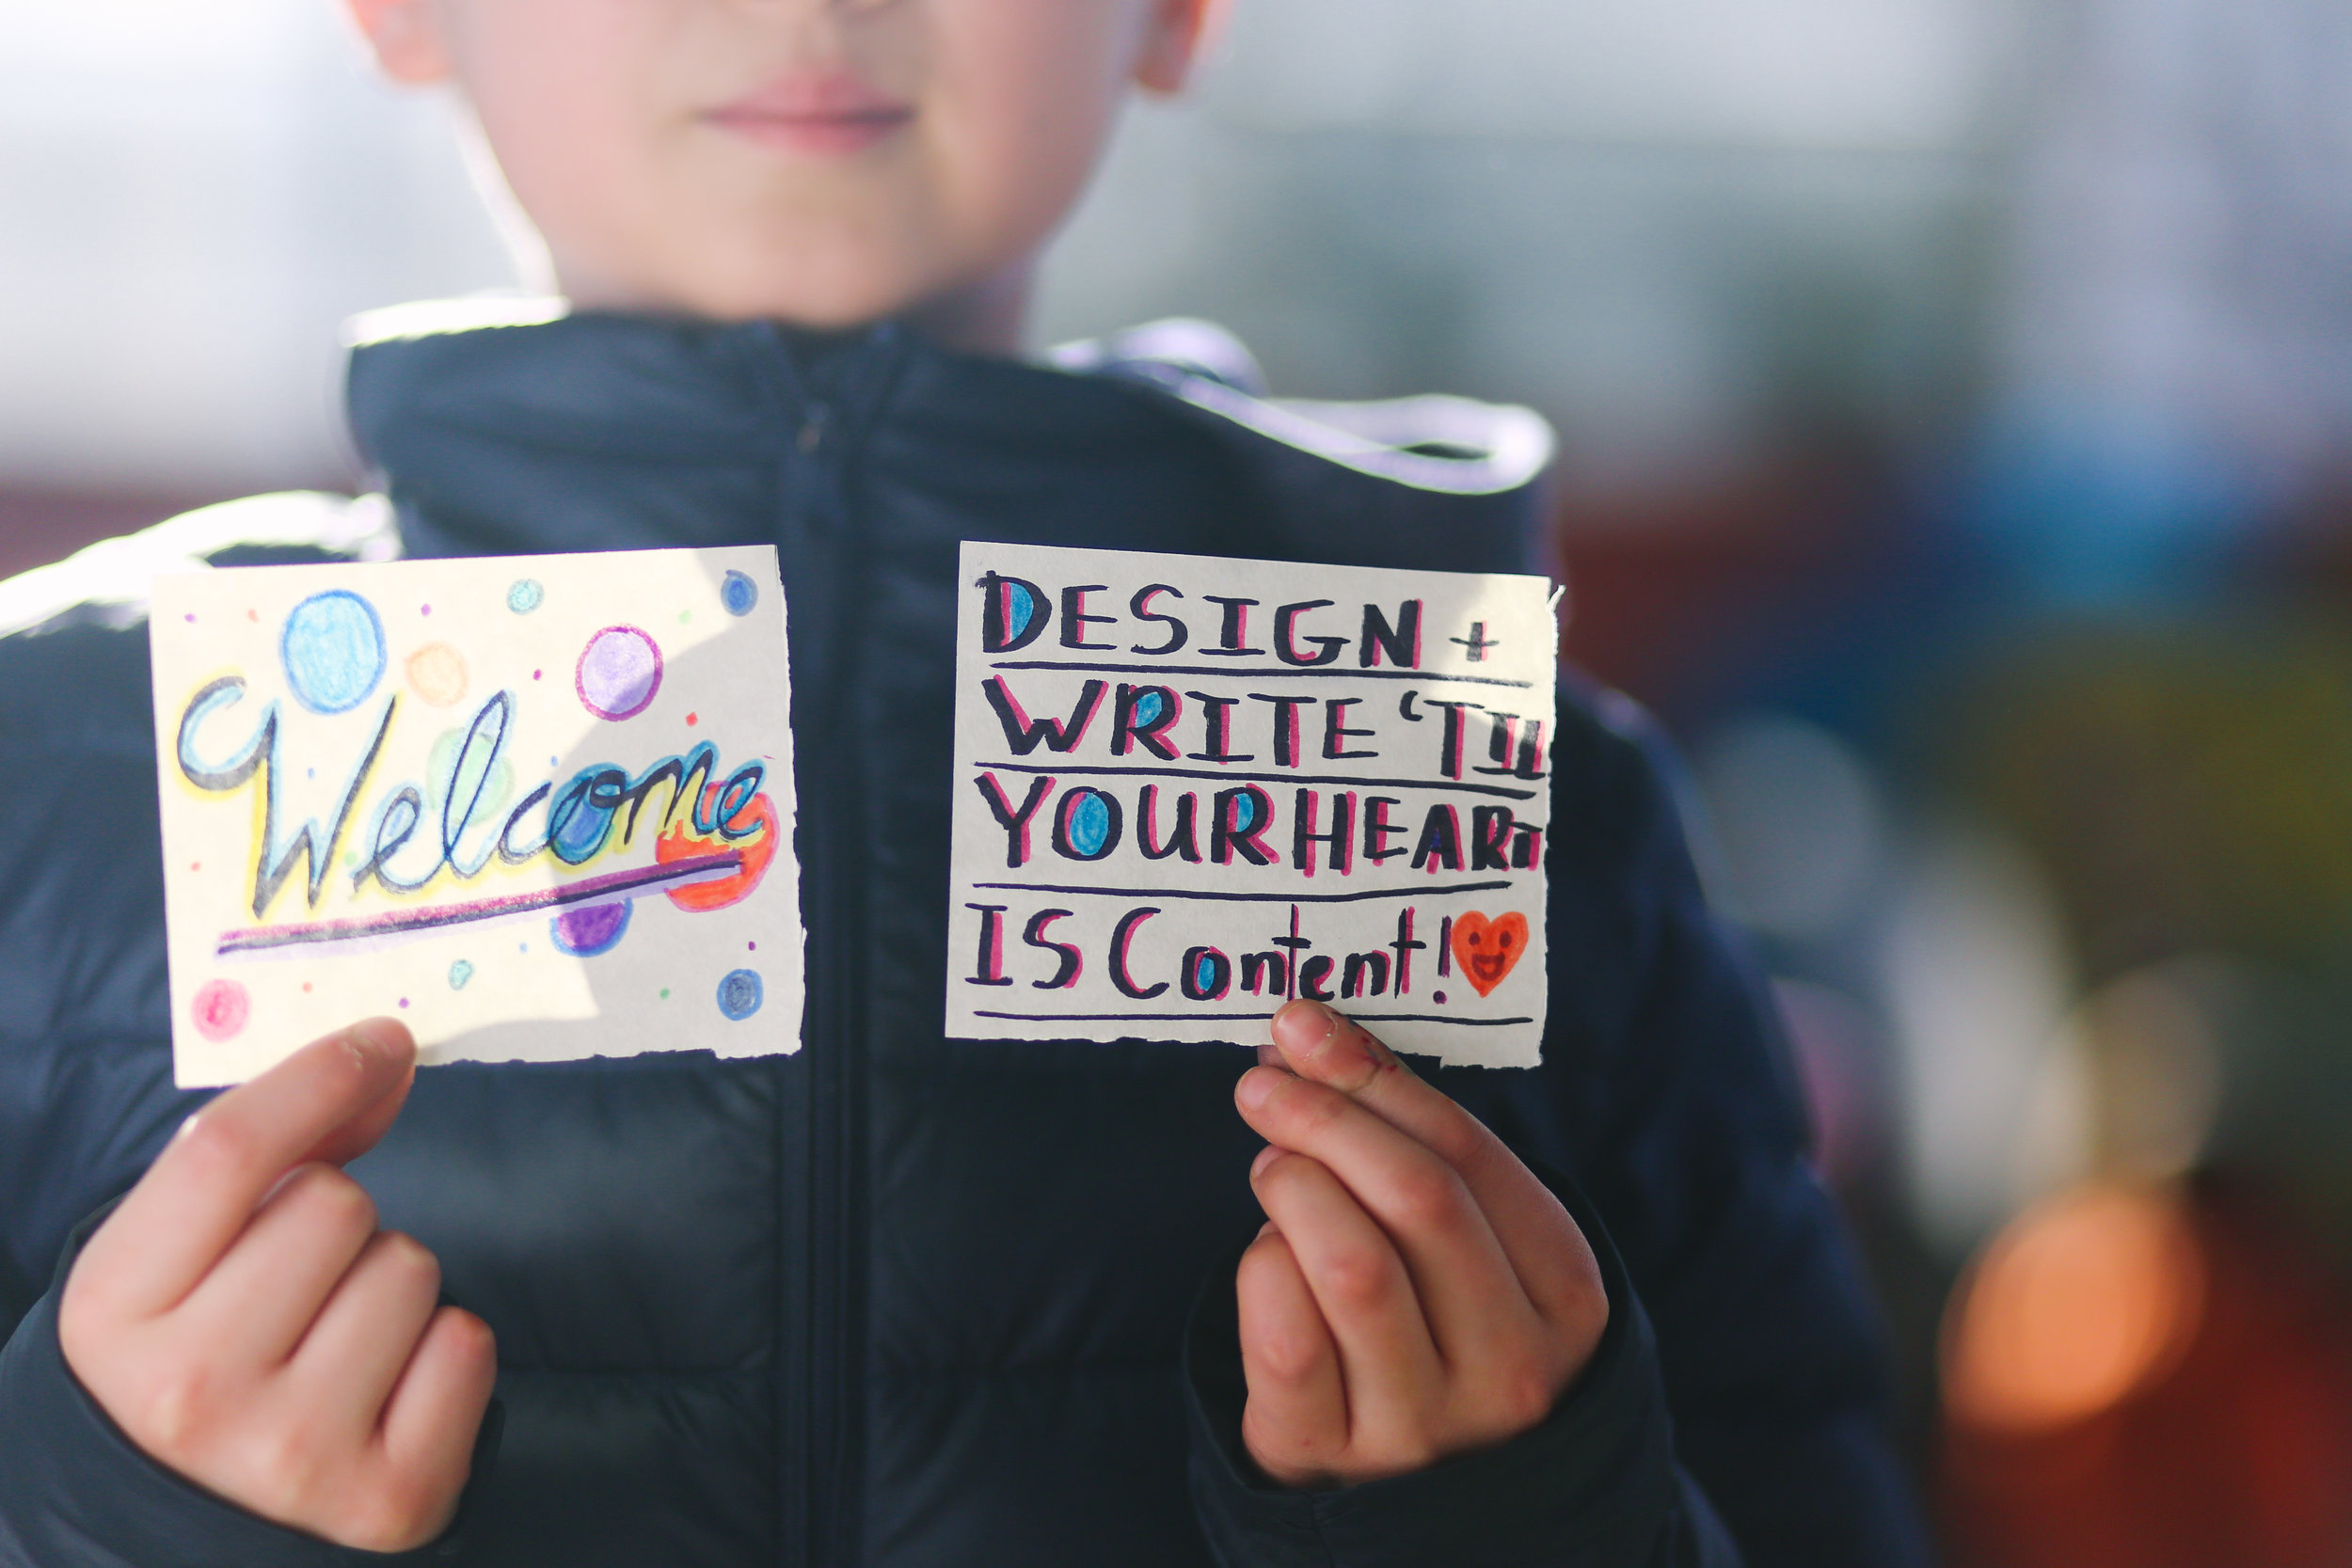 Welcome
DESIGN +
WRITE 'TIL
YOUR HEART
IS Content!